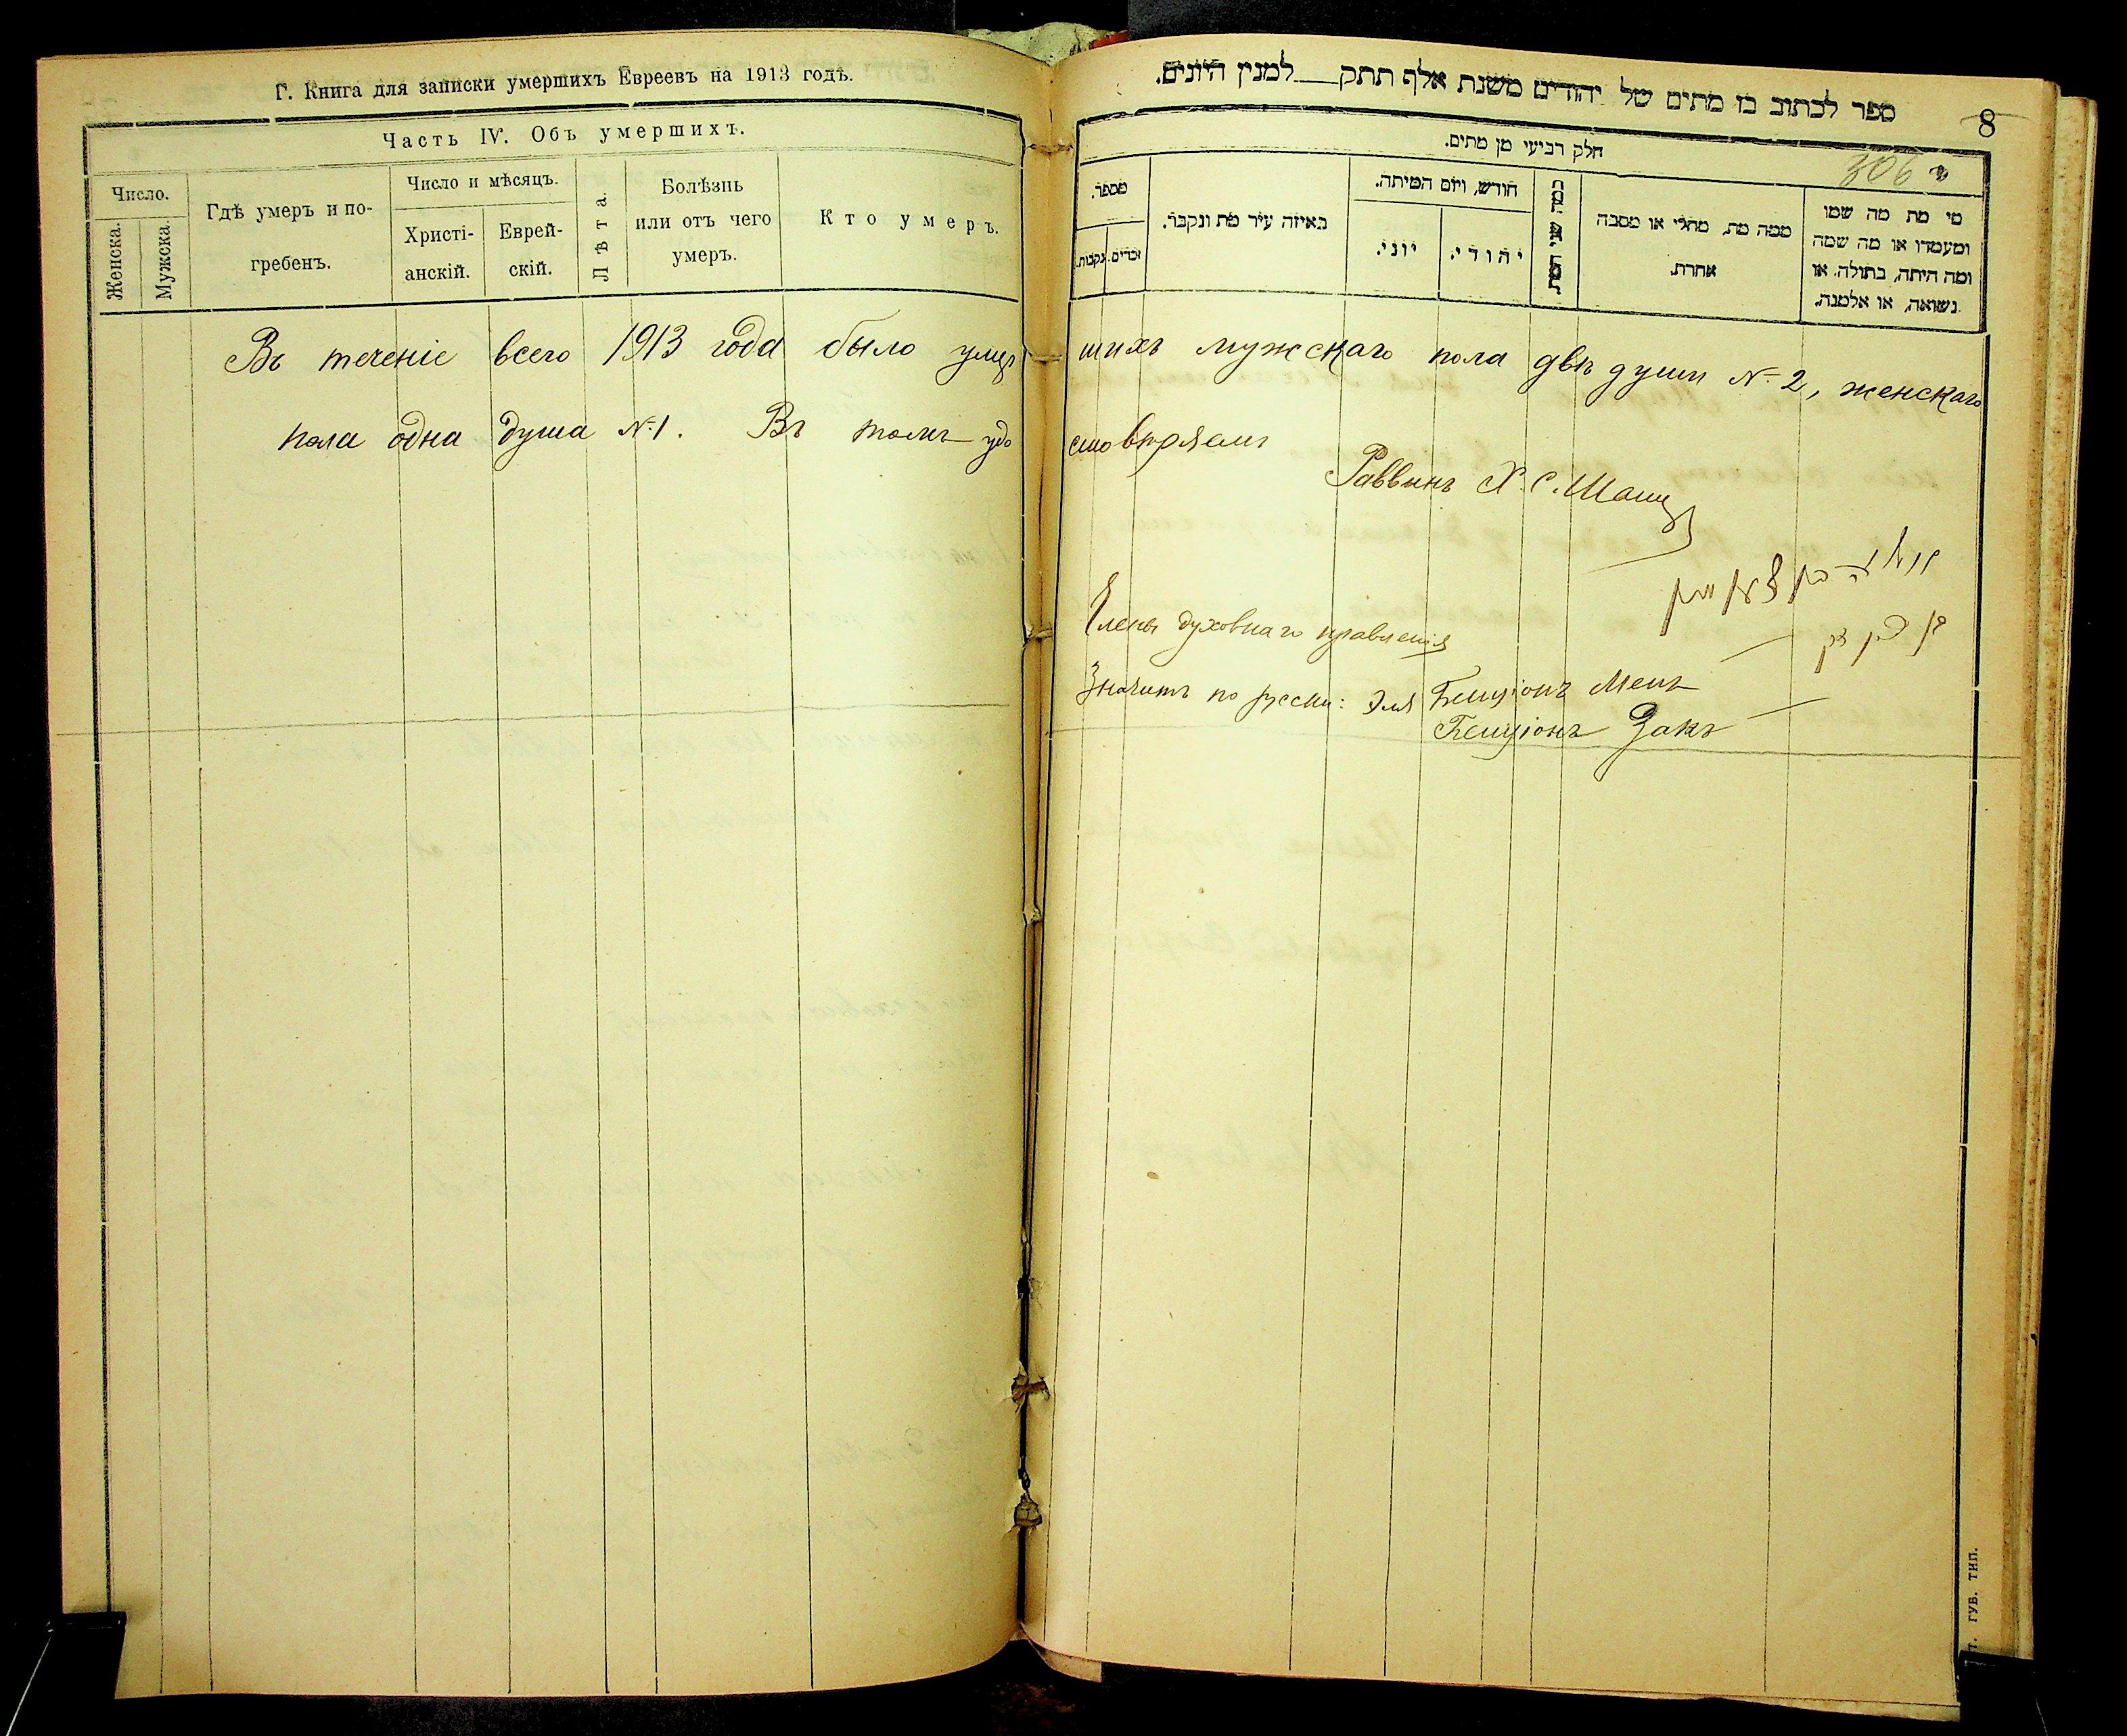 Г. Книга для записки умершихъ Евреевъ на 1913 годъ.
Часть IV. Объ умершихъ.
Число.
Женска.
Мужска.
Гдѣ умеръ и по-
гребенъ.
Число и мѣсяцъ.
Христі-
анскій.
Еврей-
скій.
Лѣта.
Болѣзнь
или отъ чего
умеръ.
Кто умеръ.
Въ теченіе всего 1913 года было умер
пола одна душа №1. Въ томъ удо
ספר לכתוב בו מתים של יהודים משנת אלף תתק——למנין היונים.
8
306
חלק רביעי מן מתים.
מספר.
זכרים.
נקבות.
באיזה עיר מת ונקבר.
חודש, ויום המיתה.
יוני.
יהודי.
כמה שני המת.
ממה מת, מחלי או מסבה
אחרת.
מי מת מה שמו
ומעמדו או מה שמה
ומה היתה, בתולה, או
נשואה, או אלמנה.
шихъ мужскаго пола двѣ души №2, женскаго
стовѣряемъ
Раввинъ Х. С.
Члены духовнаго правленія
Значитъ по русски: Эля Бенціонъ Менъ
Бенціонъ Закъ
Т. ГУБ. ТИП.